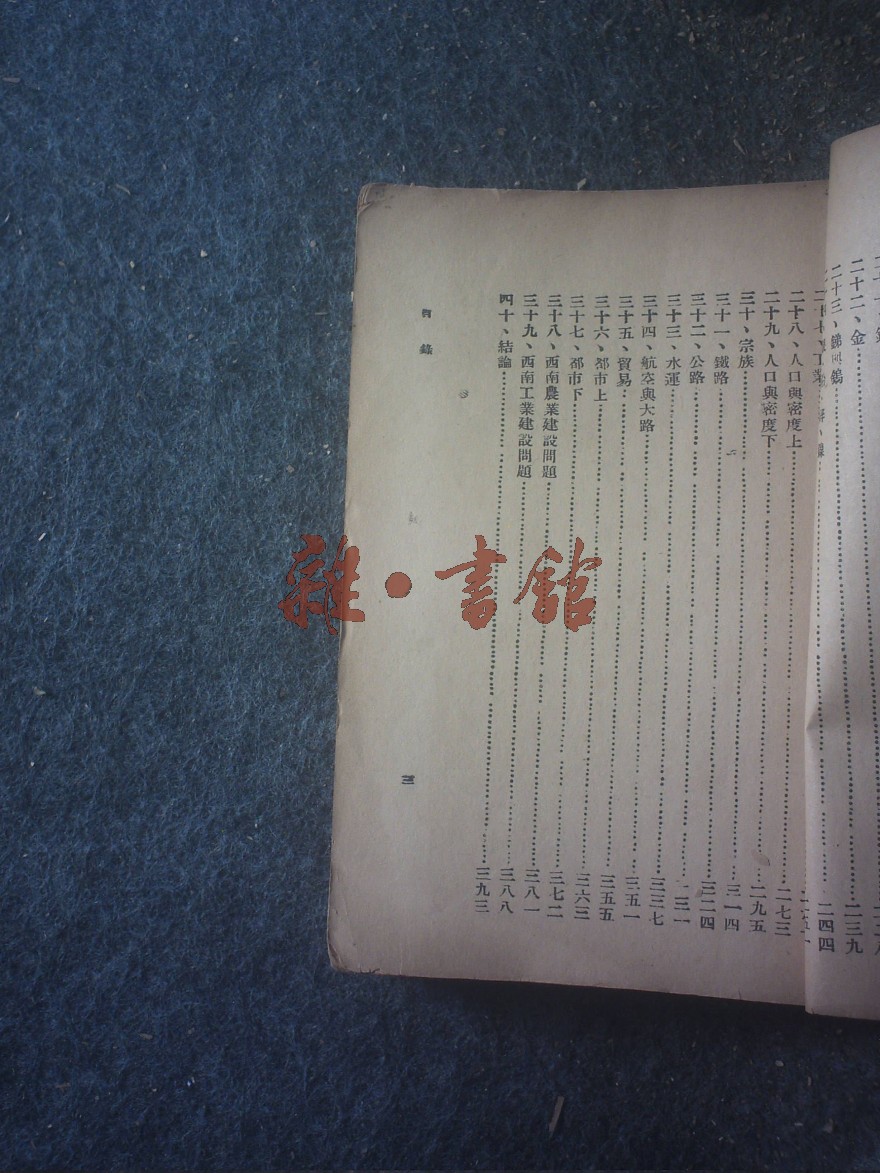 二十二、金……二三九
二十三、銻與鎢……二四四
二十八、人口與密度上……二七三
二十九、人口與密度下……二九五
三十、宗族……三一四
三十一、鐵路……三二四
三十二、公路……三三一
三十三、水運……三三七
三十四、航空與大路……三五一
三十五、貿易……三五五
三十六、都市上……三六三
三十七、都市下……三七二
三十八、西南農業建設問題……三八一
三十九、西南工業建設問題……三八八
四十、結論……三九三
目錄
三
雜·書館